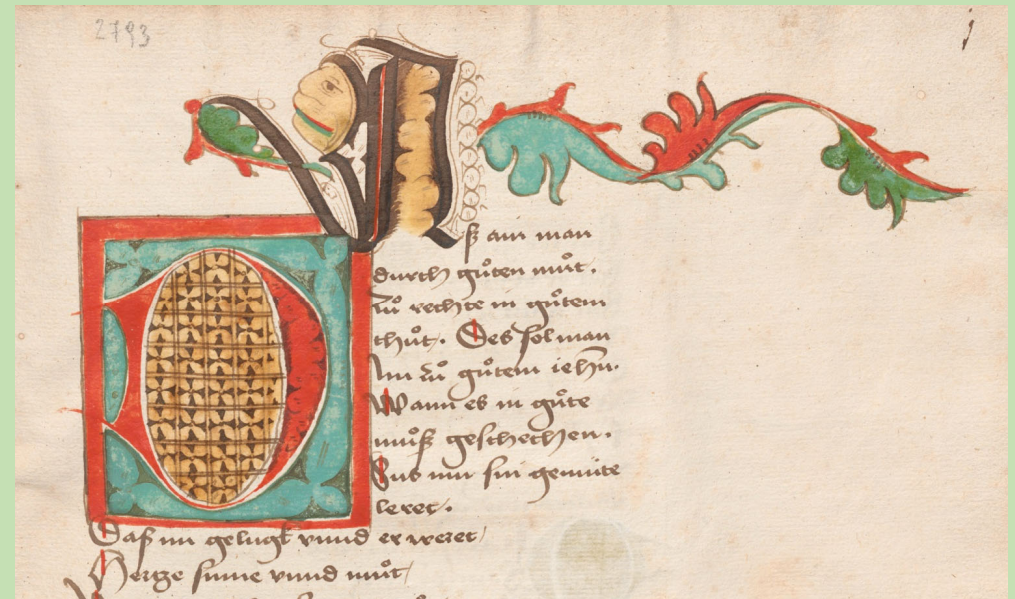 2793
1
Waß ain man
durch gůten můt.
Zů rechte in gůtem
thůt. Des sol man
Im zů gůtem iehn̄.
Wann es in gůte
můß geschechen.
Uns nur sin gemüte
leret.
Daß im gelugt vnnd er weret
Hertze sinne vnnd můt